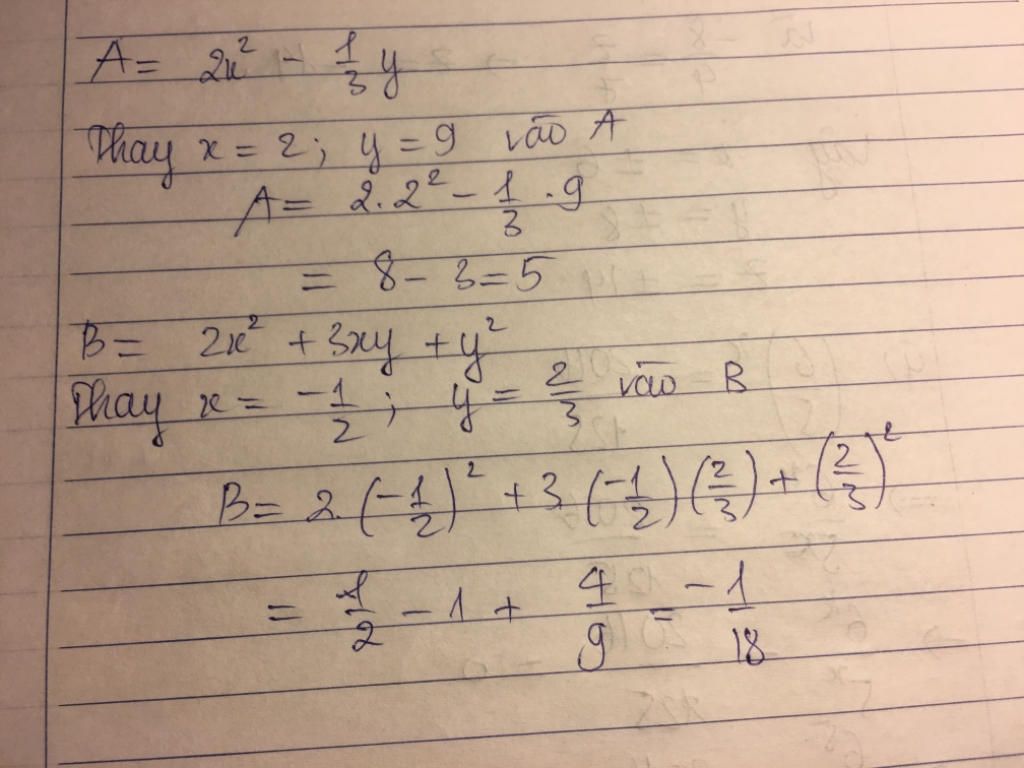 A = 2x² - 1/3 y
Thay x = 2; y = 9 vào A
A = 2.2² - 1/3 . 9
= 8 - 3 = 5
B = 2x² + 3xy + y²
Thay x = -1/2; y = 2/3 vào B
B = 2.(-1/2)² + 3.(-1/2)(2/3) + (2/3)²
= 1/2 - 1 + 4/9 = -1/18